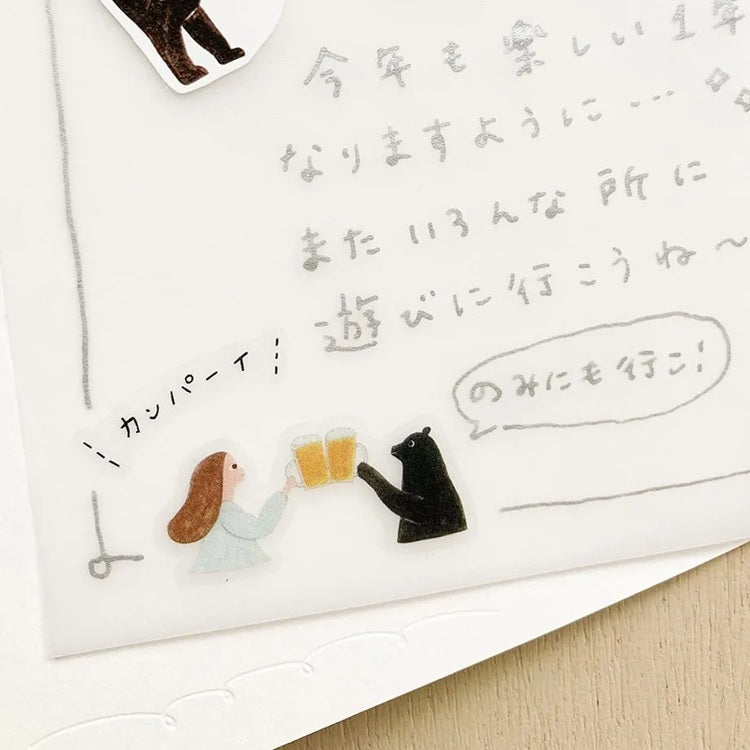 今年も楽しい1年
なりますように…
また いろんな 所に
遊びに行こうね〜
のみにも行こ!
カンパーイ